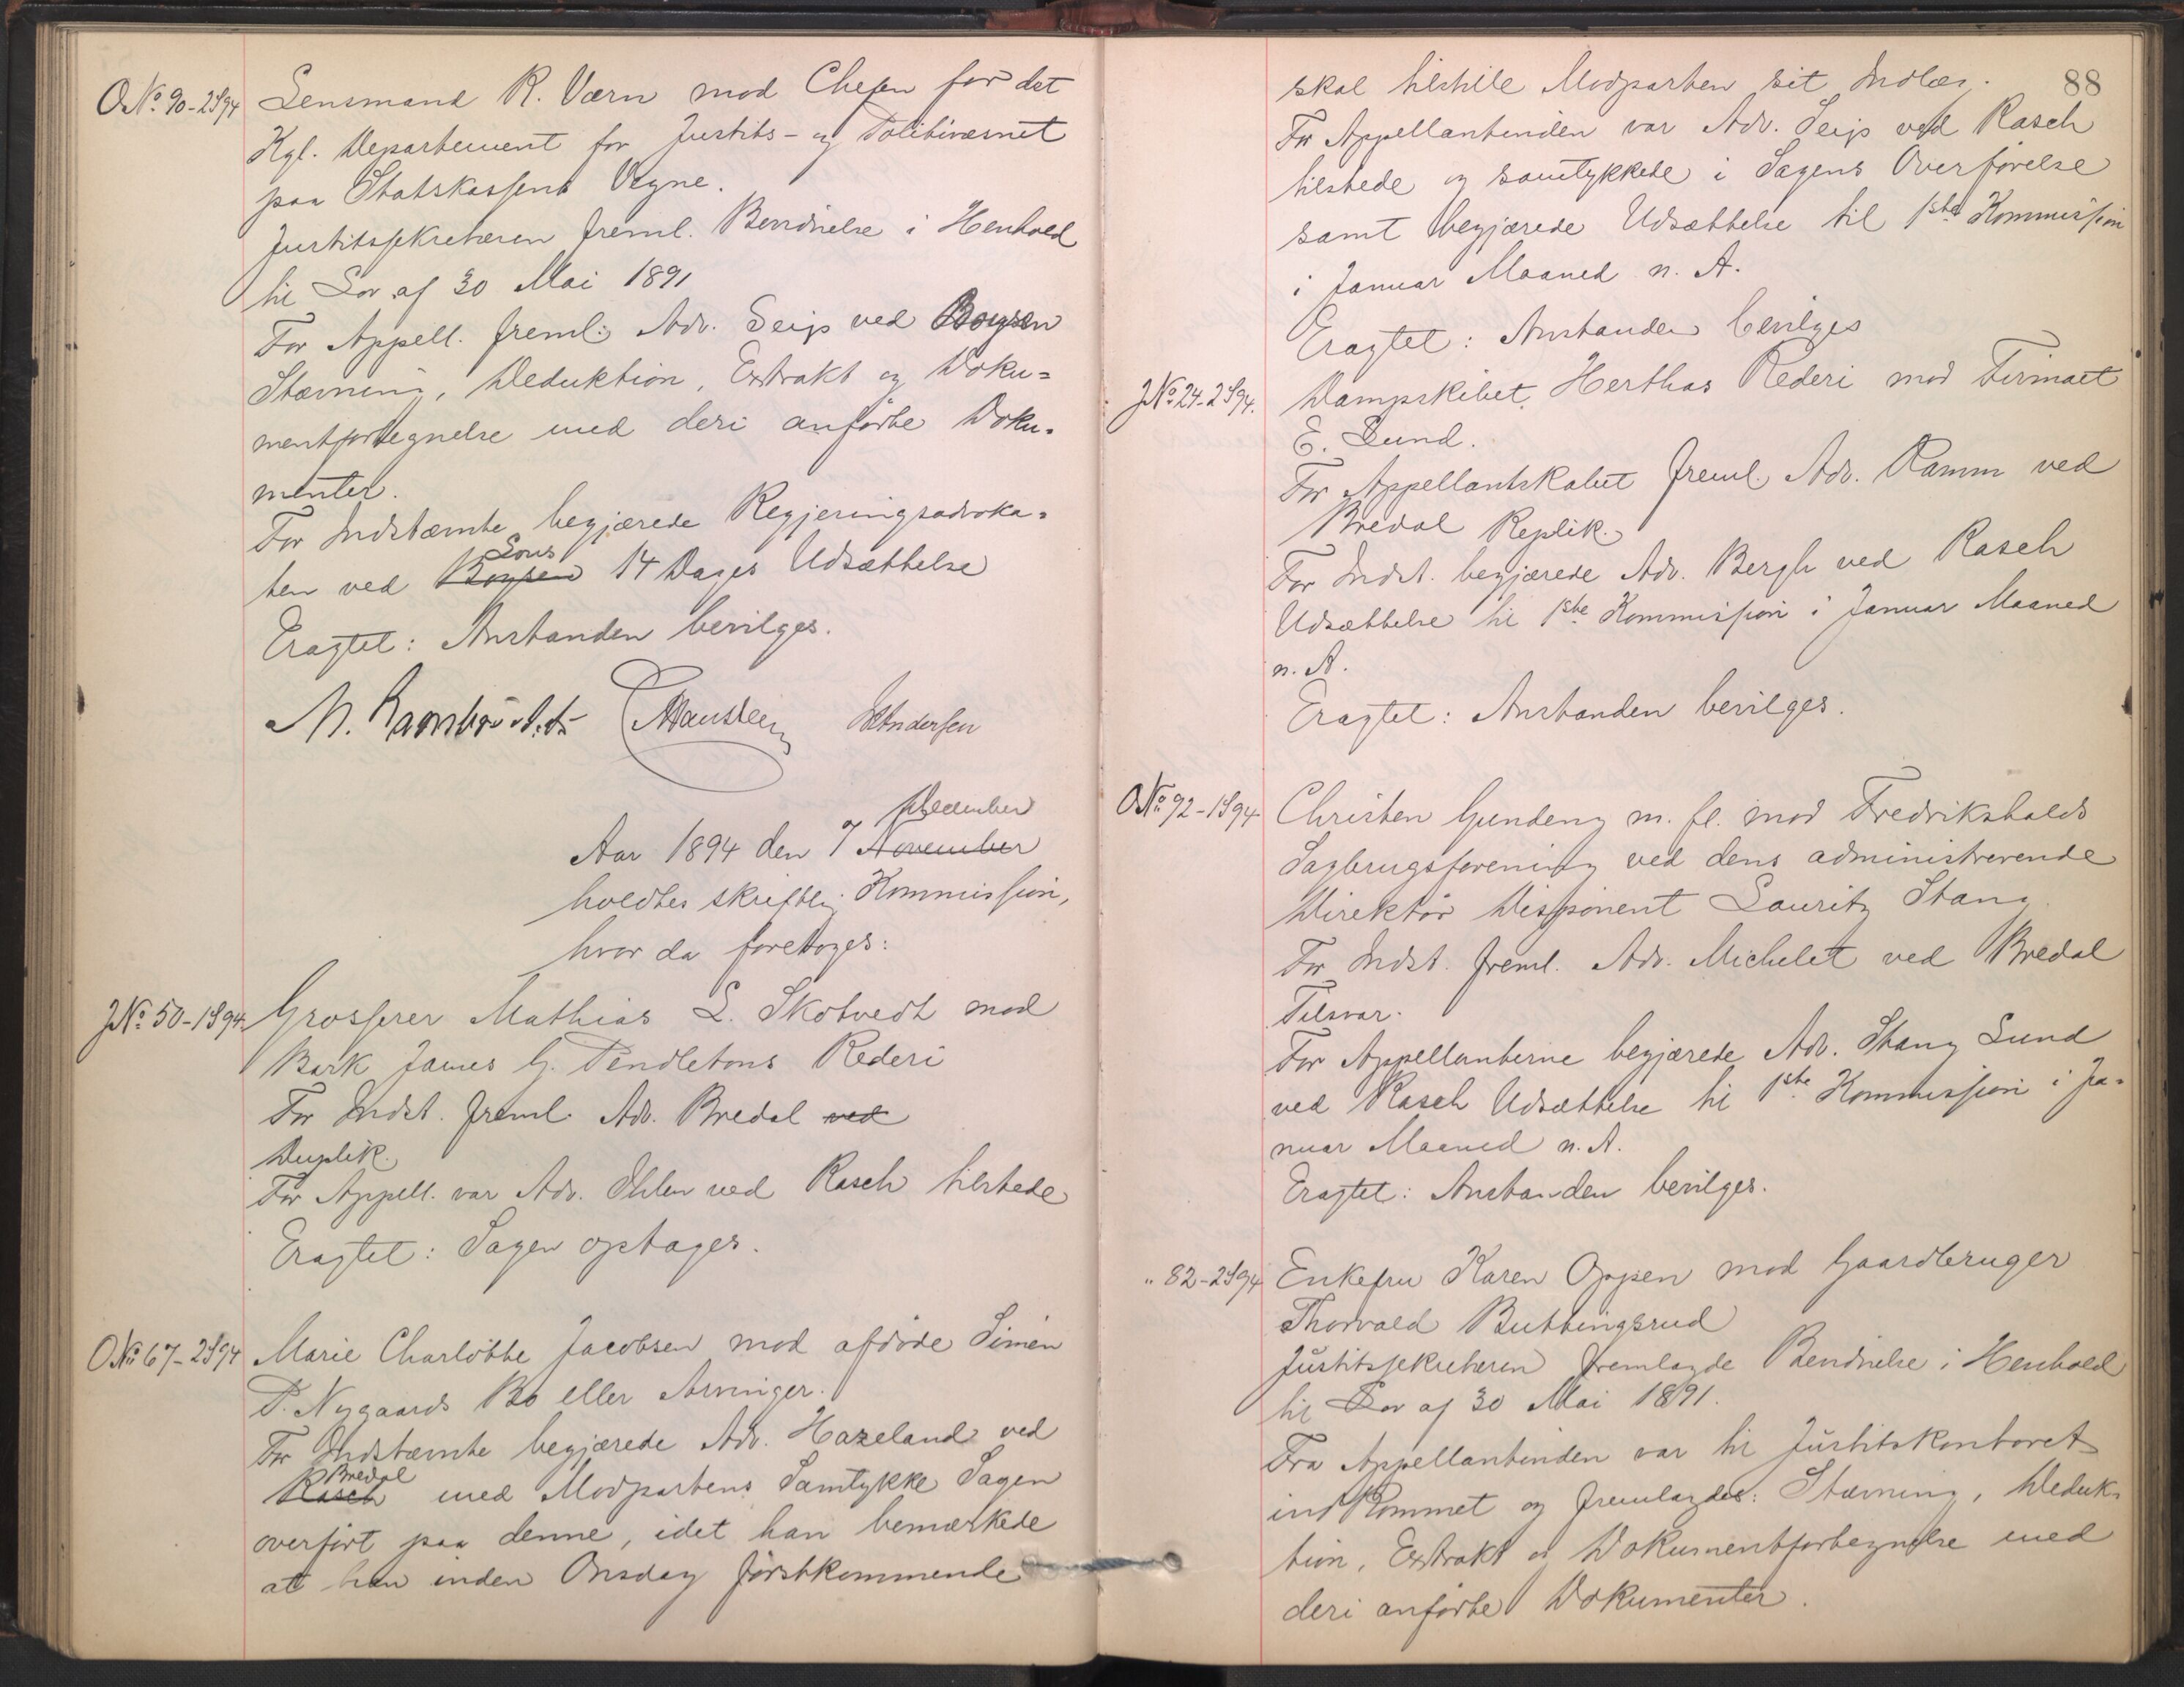 O.No 90-2S94 Lensmand R. Værn mod Chefen for det
Kgl. Departement for Justits- og Politivæsnet
paa Statskassens Vegne.
Justitssekretæren freml. Berørelse i Henhold
til Lov af 30 Mai 1891
For Appell. freml: Adv. Seip ved Boysen
Stævning, Deduktion, Extrakt og Doku=
mentfortegnelse med deri anførte Doku=
menter.
For Indstævnte begjærede Regjeringsadvoka=
ten ved Boysen Lous 14 Dages Udsættelse
Eragtet: Anstanden bevilges.
Andersen
Aar 1894 den 7 November December
holdtes skriftlig Kommission,
hvor da foretoges:
J.No 50-1S94. Grosserer Mathias L. Skotvedt mod
Bark James G. Pendletons Rederi
For Indst. freml. Adv. Bredal ved
Duplik.
For Appell. var Adv. Ihlen ved Rasch tilstede
Eragtet: Sagen optages.
O.No 67-2S94 Marie Charlotte Jacobsen mod afdøde Simen
P. Nygaards Bo eller Arvinger.
For Indstævnte begjærede Adv. Hazeland ved
Rasch Bredal med Modpartens Samtykke Sagen
overført paa denne, idet han bemærkede
at han inden Onsdag førstkommende
88
skal tilstille Modparten sit Indlæg.
For Appellantinden var Adv. Seip ved Rasch
tilstede og samtykkede i Sagens Overførelse
samt begjærede Udsættelse til 1ste Kommission
i Januar Maaned n. A.
Eragtet: Anstanden bevilges
J.No 24-2S94. Dampskibet Herthas Rederi mod Firmaet
E. Lund.
For Appellantskabet freml. Adv. Ramm ved
Bredal Replik.
For Indst. begjærede Adv. Bergh ved Rasch
Udsættelse til 1ste Kommission i Januar Maaned
n. A.
Eragtet: Anstanden bevilges.
O.No 92-1S94 Christen Gundeng m. fl. mod Fredrikshalds
Sagbrugsforening ved dens administrerende
Direktør Disponent Lauritz Stang
For Indst. freml. Adv. Michelet ved Bredal
Tilsvar.
For Appellanterne begjærede Adv. Stang Lund
ved Rasch Udsættelse til 1ste Kommission i Ja=
nuar Maaned n. A.
Eragtet: Anstanden bevilges.
" 82-2S94 Enkefru Karen Oppen mod Gaardbruger
Thorvald Buttingsrud
Justitssekretæren fremlagde Berørelse i Henhold
til Lov af 30 Mai 1891.
Fra Appellantinden var til Justitskontoret
indkommet og fremlagdes: Stævning, Deduk=
tion, Extrakt og Dokumentfortegnelse med
deri anførte Dokumenter.